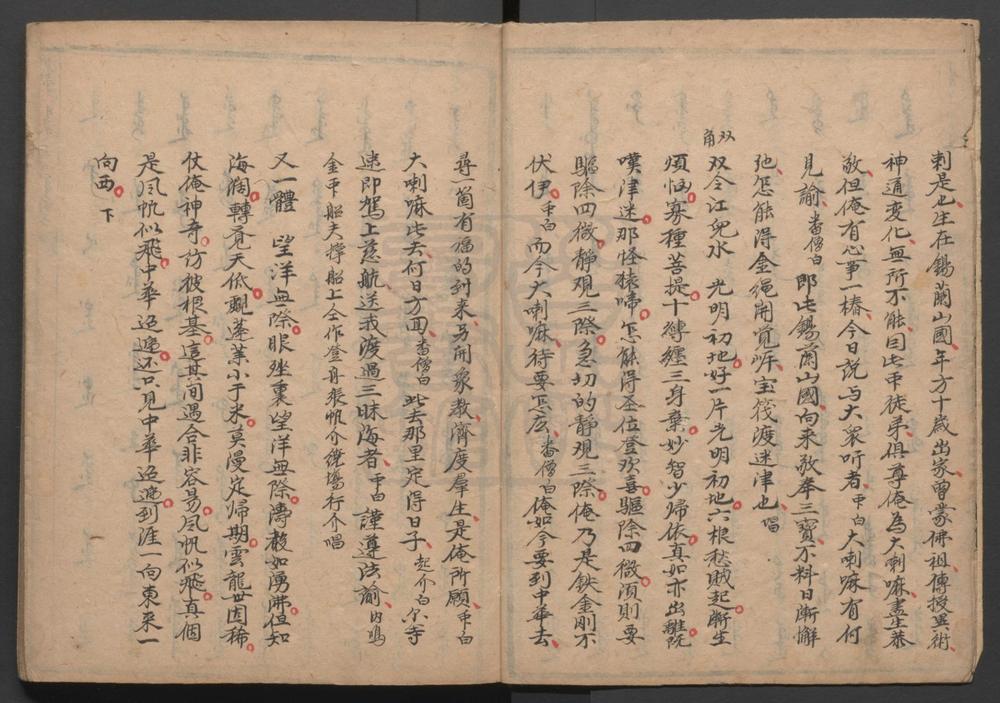 剌是也生在錫蘭山國年方十歲出家曾蒙佛祖傳授異術
神通變化無所不能因此中徒弟俱尊俺為大喇嘛盡恭
敬但俺有心事一樁今日說与大衆听者 中白 大喇嘛有何
見諭 番僧白 即此錫蘭山國向來敬奉三寶不料日漸懈
弛怎能得金繩開覺岸宝筏渡迷津也 唱
双角
双令江兒水 光明初地好一片光明初地六根愁賊起漸生
煩惱寡種菩提十縛纏三身棄妙智少歸依真如亦出離既
嘆津迷那怪猿啼怎能得圣位登欢喜驅除四微須則要
驅除四微靜观三際急切的靜观三際俺乃是鉄金剛不
伏伊 中白 而今大喇嘛待要怎么 番僧白 俺如今要到中華去
尋一箇有福的到来另開象教濟度羣生是俺所願 中白
大喇嘛此去何日方回 番僧白 此去那里定得日子 起介白 尔等
速即駕上慈航送我渡過三昧海者 中白 謹遵法諭 内鳴
金平船夫撑船上全作登舟張帆介繞場行介唱
又一體 望洋無際眼矬裏望洋無際濤教如湧沸但知
海濶轉覓天低覷蓬萊小于米莫慢定歸期雲龍世因稀
仗俺神奇訪彼根基這其间遇合非容易風帆似飛真個
是风帆似飛中華迢遞还只見中華迢遞到涯一向東来一
向西 下